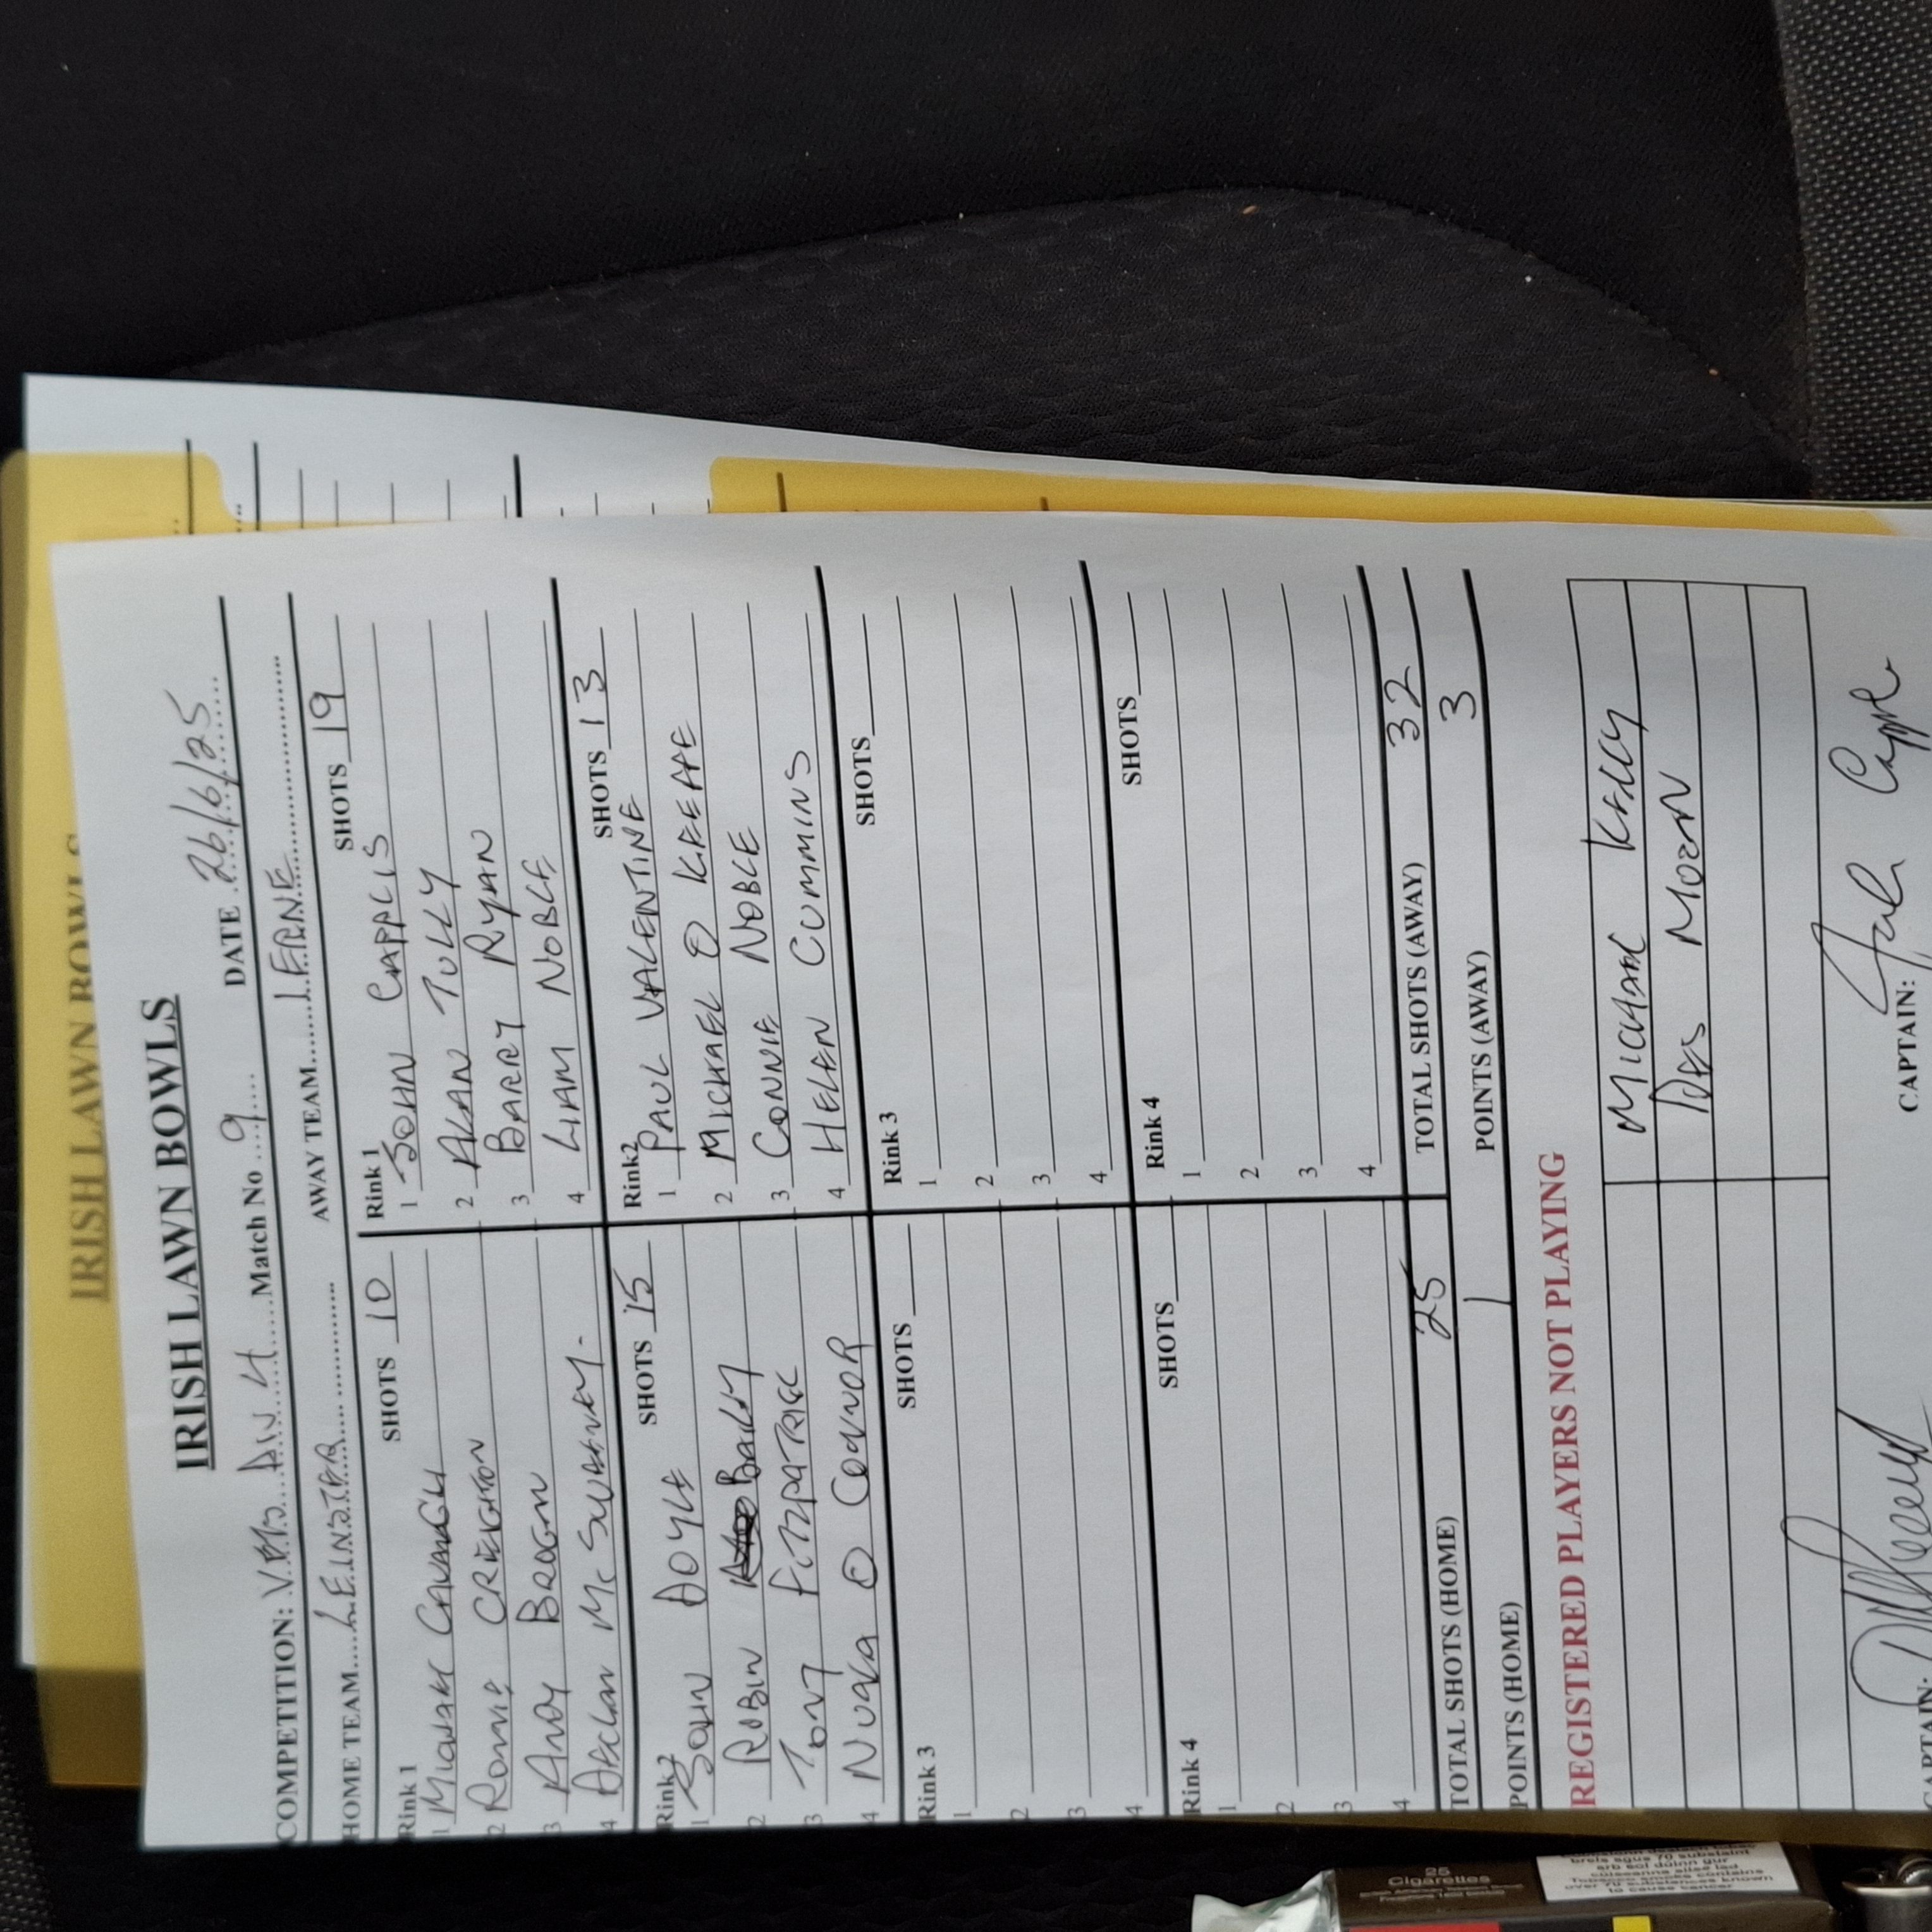 IRISH LAWN BOWLS
IRISH LAWN BOWLS
COMPETITION: V.P.D. DIV 4 Match No 9 DATE 26/6/25
HOME TEAM LEINSTER AWAY TEAM IERNE
Rink 1 SHOTS 10 Rink 1 SHOTS 19
1 MICHAEL CAVANAGH 1 JOHN CAPPLIS
2 RONNIE CREIGHTON 2 ALAN TULLY
3 ANDY BROGAN 3 BARRY RYAN
4 DECLAN MC SWEENEY. 4 LIAM NOBLE
Rink2 SHOTS 15 Rink2 SHOTS 13
1 JOHN DOYLE 1 PAUL VALENTINE
2 ROBIN BAILEY 2 MICHAEL O KEEFFE
3 TONY FITZPATRICK 3 CONNIE NOBLE
4 NUALA O CONNOR 4 HELEN CUMMINS
Rink 3 SHOTS Rink 3 SHOTS
1 1
2 2
3 3
4 4
Rink 4 SHOTS Rink 4 SHOTS
1 1
2 2
3 3
4 4
TOTAL SHOTS (HOME) 25 TOTAL SHOTS (AWAY) 32
POINTS (HOME) 1 POINTS (AWAY) 3
REGISTERED PLAYERS NOT PLAYING
MICHAEL KELLY
DES MORAN
CAPTAIN: CAPTAIN:
25
Cigarettes